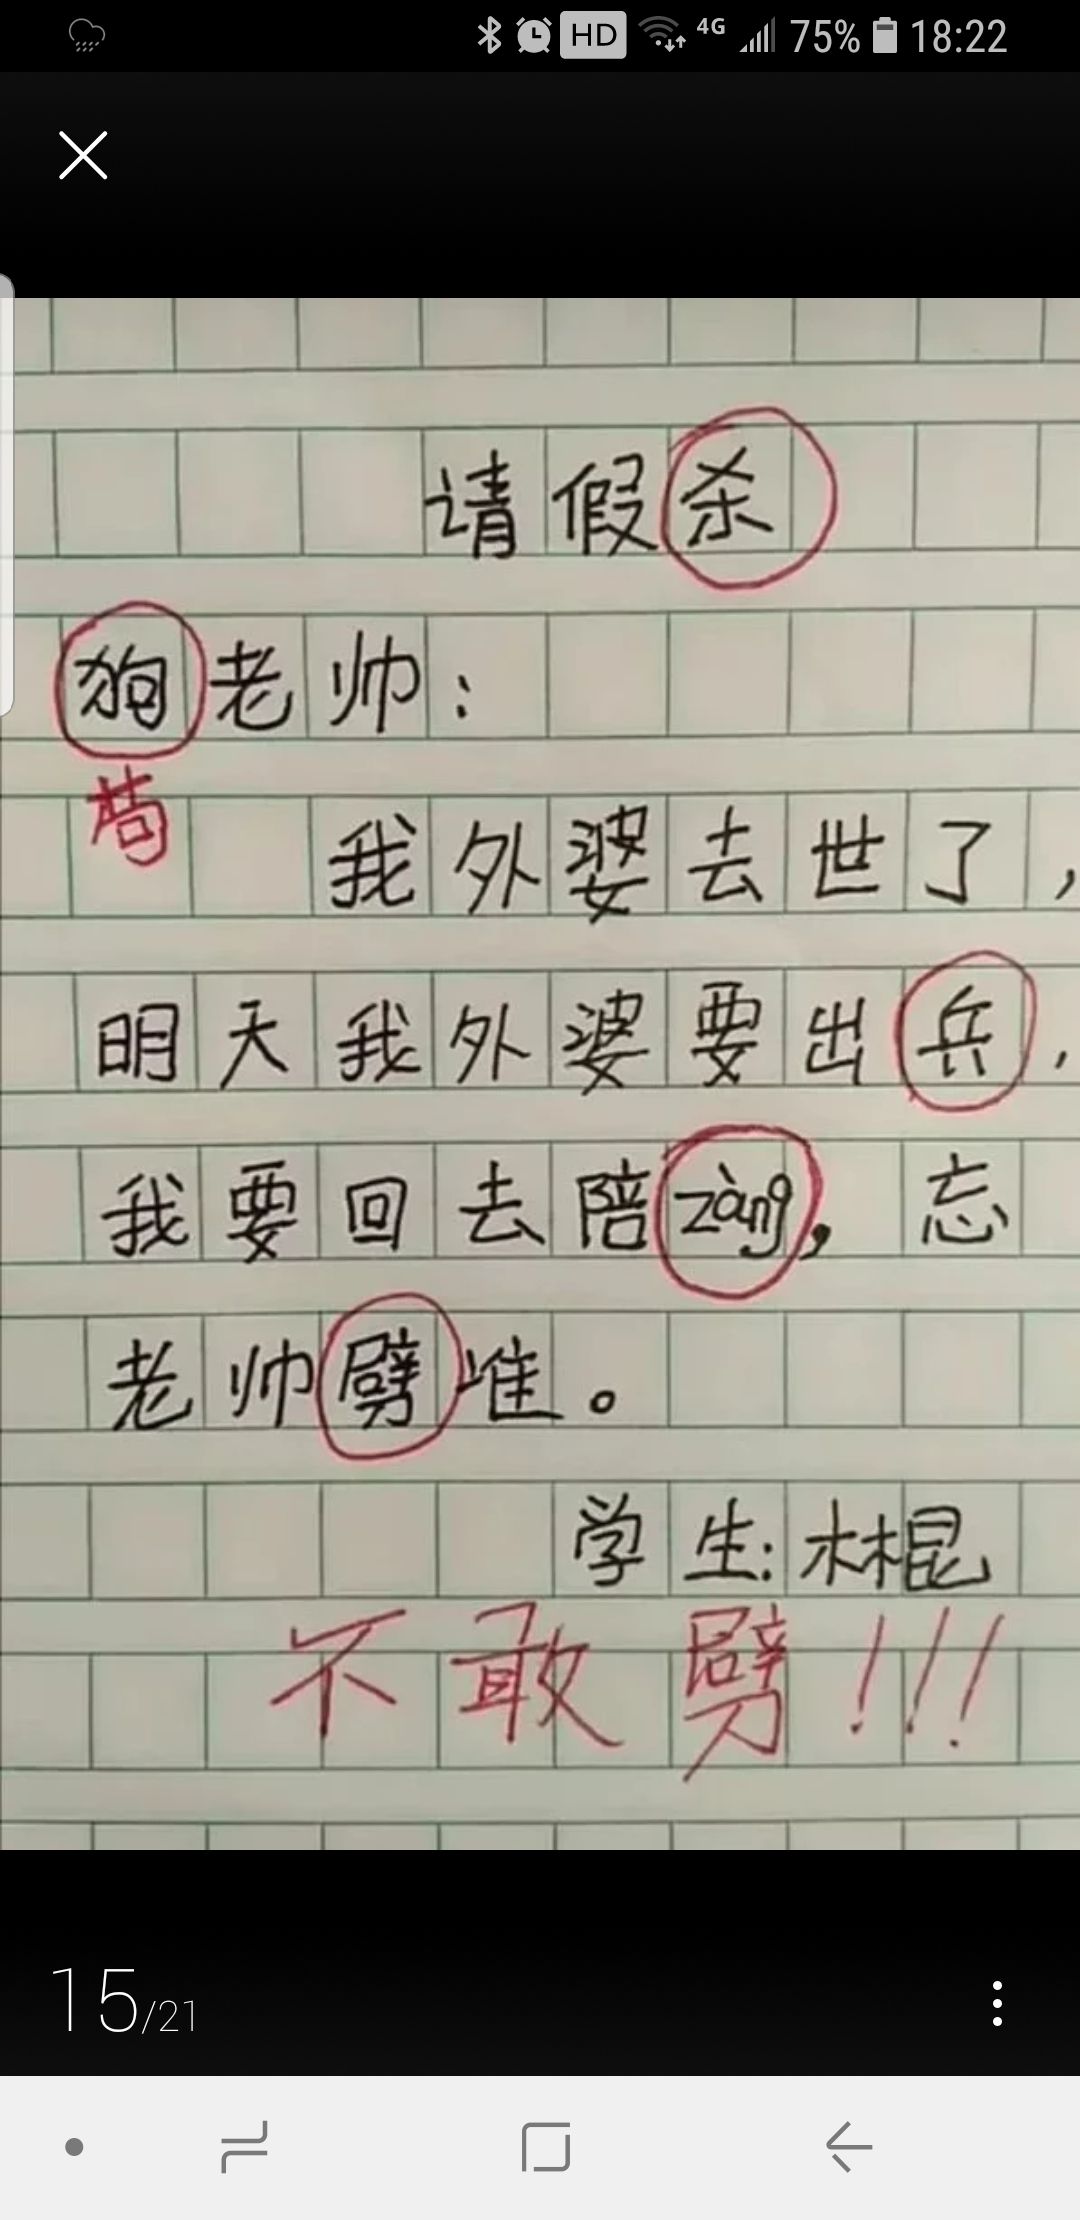 HD 4G 75% 18:22
请假杀
狗老帅：
苟
我外婆去世了，
明天我外婆要出兵，
我要回去陪zàng，忘
老帅劈准。
学生：林棍
不敢劈！！！
15/21